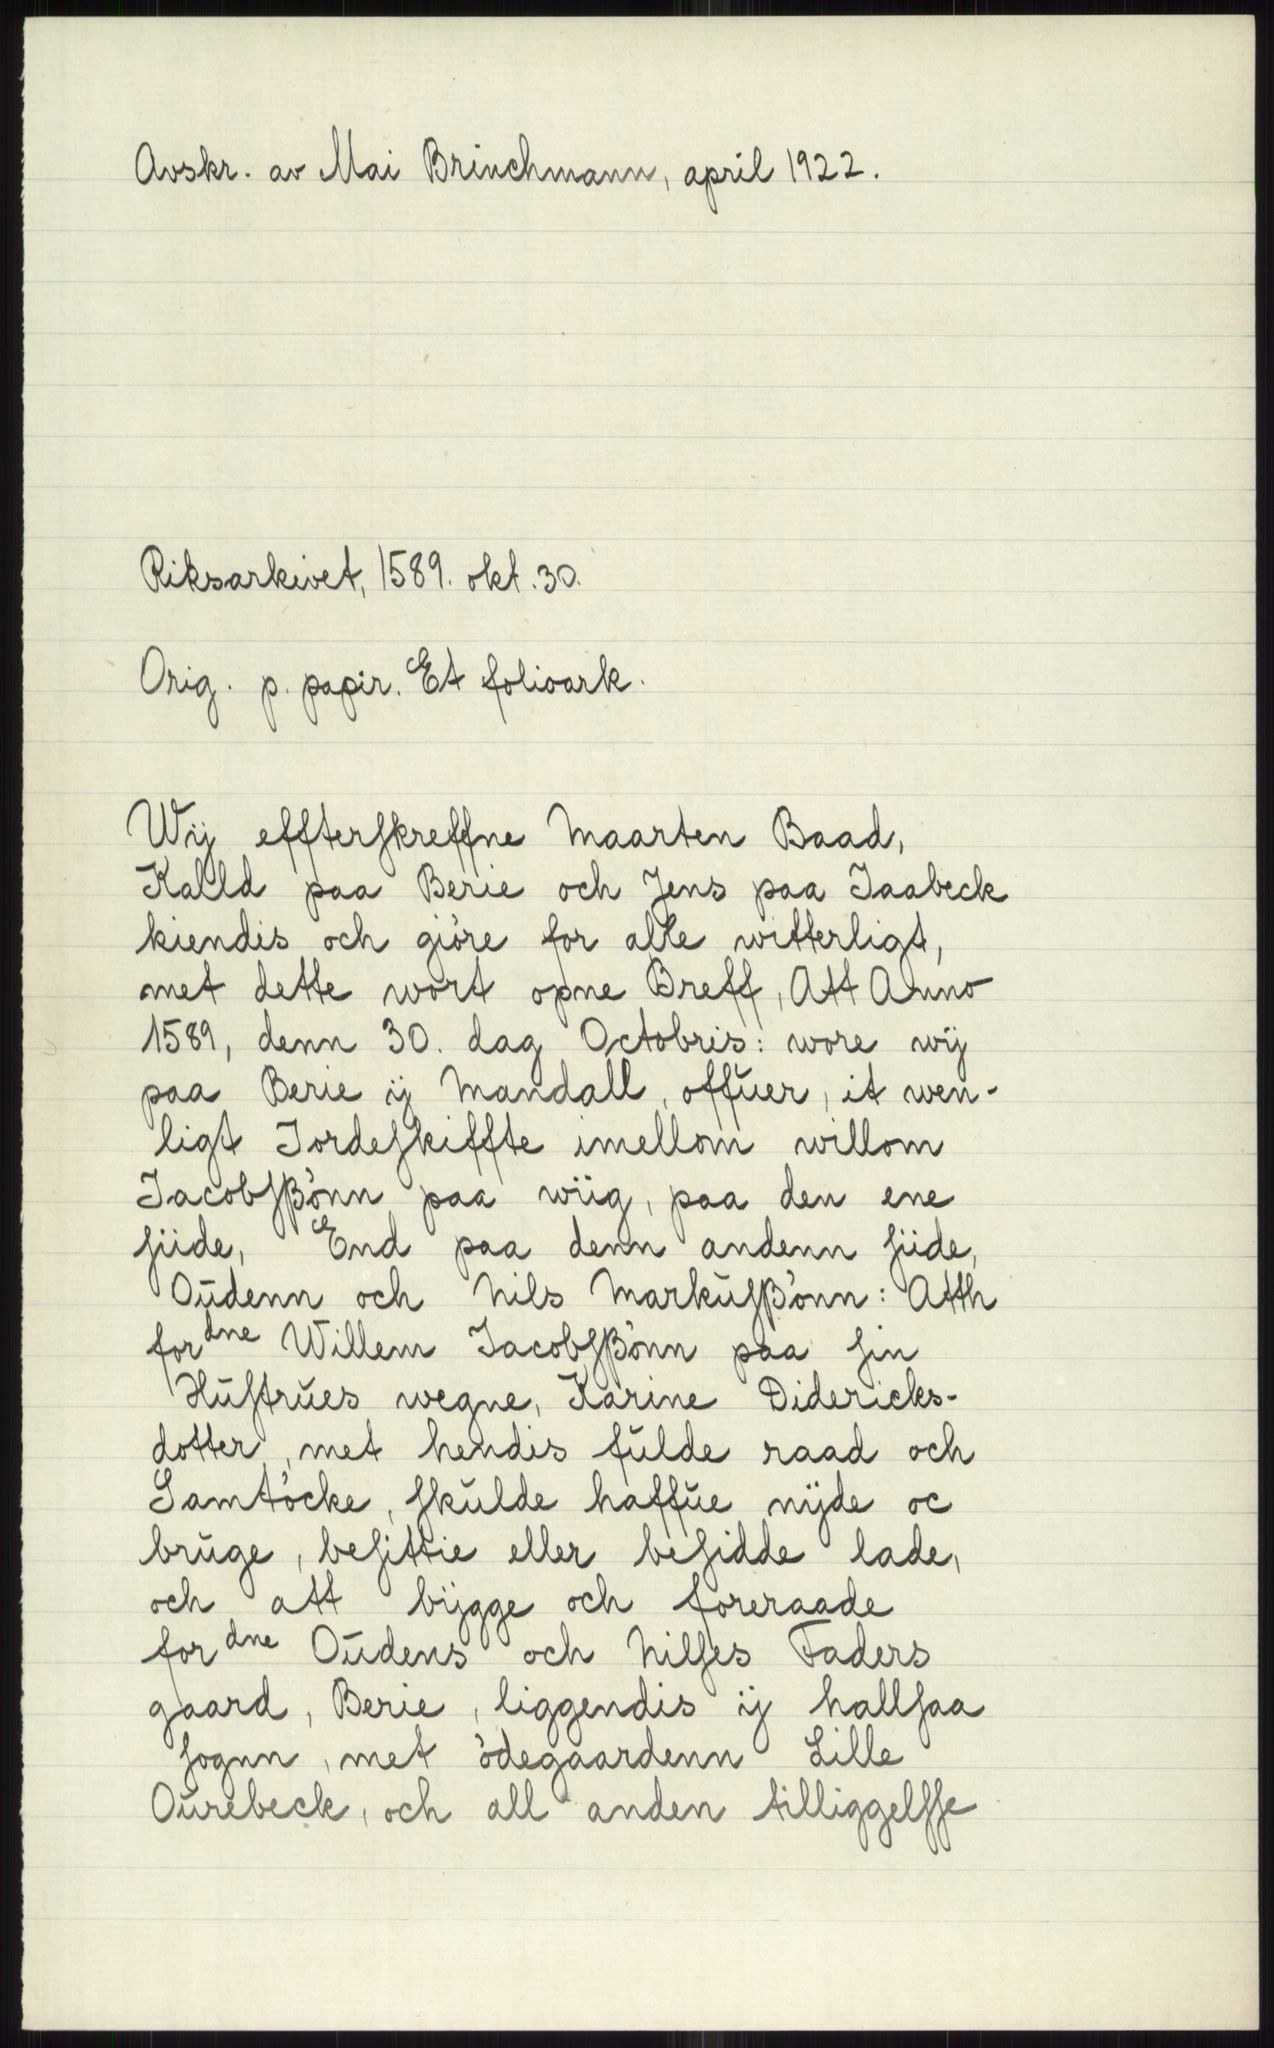 Avskr. av Mai Brinchmann, april 1922.
Riksarkivet, 1589. okt. 30.
Orig. p. papir. Et folioark.
Wÿ effterſkreffne Maarten Baad,
Kalld paa Berie och Jens paa Jaabeck
kiendis och giöre for alle witterligt,
met dette wort opne Breff, Att Anno
1589, denn 30. dag Octobris: wore wÿ
paa Berie ÿ Mandall, offuer, it wen-
ligt Jordeſkiffte imellom willom
Jacobſßönn paa wiig, paa den ene
ſiide, End paa denn andenn ſiide,
Oŭdenn och Nils Markŭſßönn: Atth
for dne Willem Jacobſßönn paa ſin
Hŭſtrŭes wegne, Karine Didericks-
dotter, met hendis fŭlde raad och
Samtöcke, ſkŭlde haffŭe nÿde oc
brŭge, beſittie eller beſidde lade,
och att bÿgge och foreraade
for dne Oŭdens och Nilſes Faders
gaard, Berie, liggendis ÿ hallſaa
ſognn, met ödegaardenn Lille
Oŭrebeck, och all anden tilliggelſſe